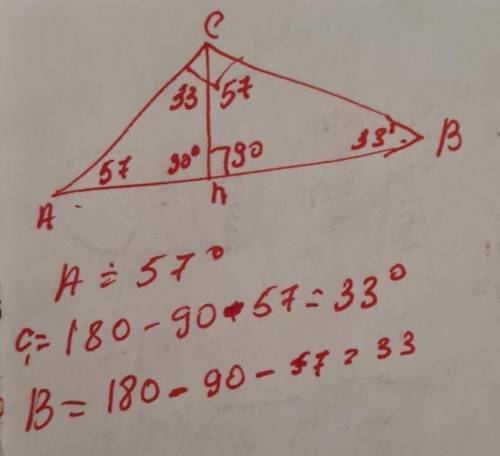 C
33 57
57 90° 90 33°
A n B
A = 57°
C₁ = 180 - 90 - 57 = 33°
B = 180 - 90 - 57 = 33